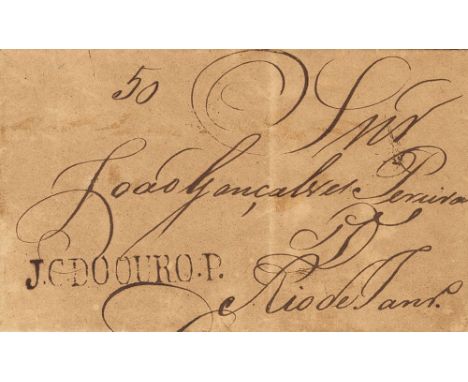 50
Snr
João Gonçalves Pereira
J.C.DOOURO.P.
Rio de Janr.